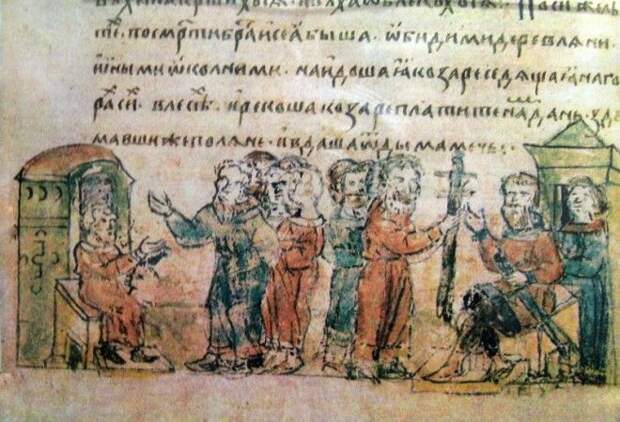 По сих же лѣ
тѣ. по смр҃ти братиꙗ сеа быша. ѡбидими деревлѧни.
иными ѡколними. наидоша ꙗ козаре седѧщаꙗ на го
рах сих. в лесѣ. и рекоша козаре платите нам дань. здꙋ
мавши же полѧне. и вдаша ѿ дыма мечь.